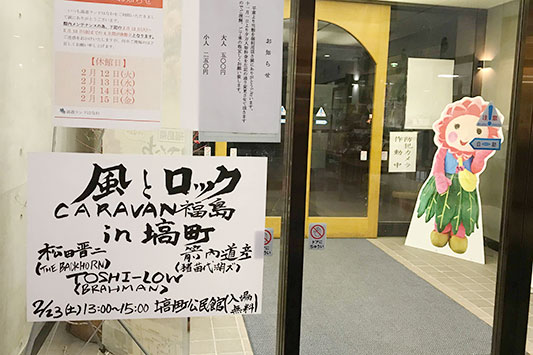 【休館日】
2月12日(火)
2月13日(水)
2月14日(木)
2月15日(金)
お知らせ
大人 五〇〇円
小人 二五〇円
防犯カメラ
作動中
風とロック
CARAVAN福島
in 塙町
松田晋二
(THE BACKHORN)
箭内道彦
(猪苗代湖ズ)
TOSHI-LOW
(BRAHMAN)
2/23(土)13:00~15:00 塙町公民館(入場無料)